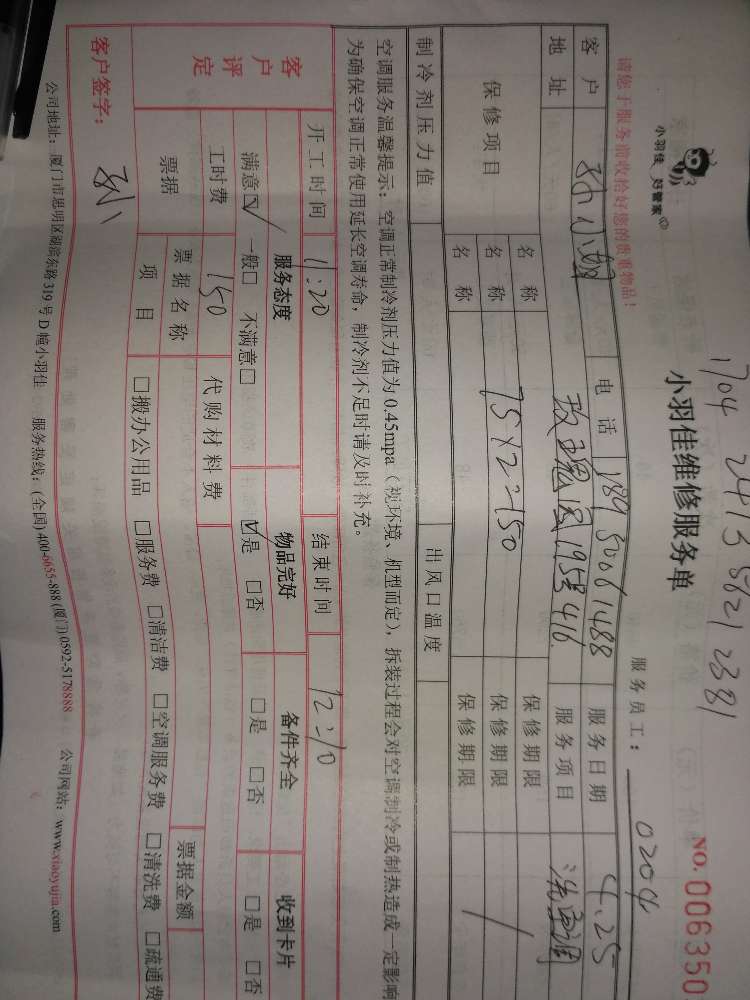 小羽佳 好管家
1704 2413 5621 2381
小羽佳维修服务单
NO. 006350
请您于服务前收拾好您的贵重物品！
服务员工： 0204
客户 电话 189 5006 1488 服务日期 4.25
地址 玫瑰园195号416 服务项目 洗空调
保修项目 名称 保修期限
名称 75×2=150 保修期限 /
名称 保修期限
制冷剂压力值 出风口温度
空调服务温馨提示：空调正常制冷剂压力值为0.45mpa（视环境、机型而定），拆装过程会对空调制冷或制热造成一定影响
为确保空调正常使用延长空调寿命，制冷剂不足时请及时补充。
客户评定
开工时间 11:20 结束时间 12:10
服务态度 物品完好 备件齐全 收到卡片
满意☑ 一般□ 不满意□ ☑是 □否 □是 □否 □是 □否
工时费 150 代购材料费
票据 票据名称 票据金额
项目 □搬办公用品 □服务费 □清洁费 □空调服务费 □清洗费 □疏通费
客户签字：
公司地址：厦门市思明区湖滨东路319号D幢小羽佳 服务热线：(全国)400-6655-888(厦门)0592-5178888 公司网站：www.xiaoyujia.com